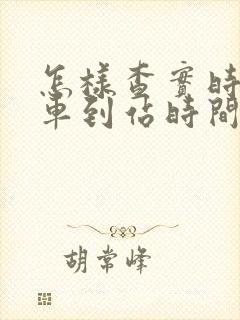 怎樣查實時
車到佔時間
胡常峰